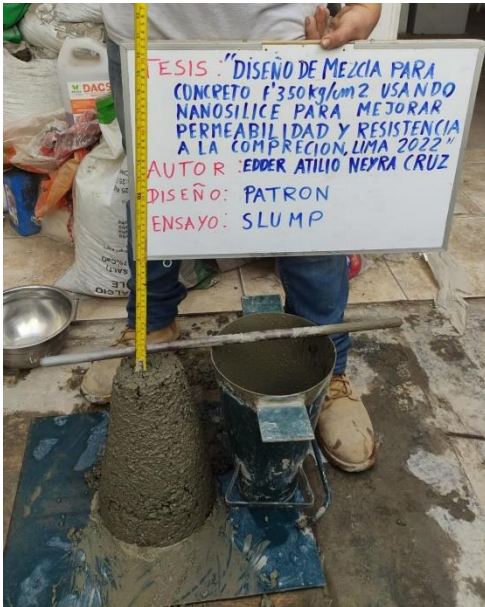 TESIS: "DISEÑO DE MEZCLA PARA
CONCRETO f'350kg/cm2 USANDO
NANOSILICE PARA MEJORAR
PERMEABILIDAD Y RESISTENCIA
A LA COMPRECION, LIMA 2022"
AUTOR: EDDER ATILIO NEYRA CRUZ
DISEÑO: PATRON
ENSAYO: SLUMP
DACS